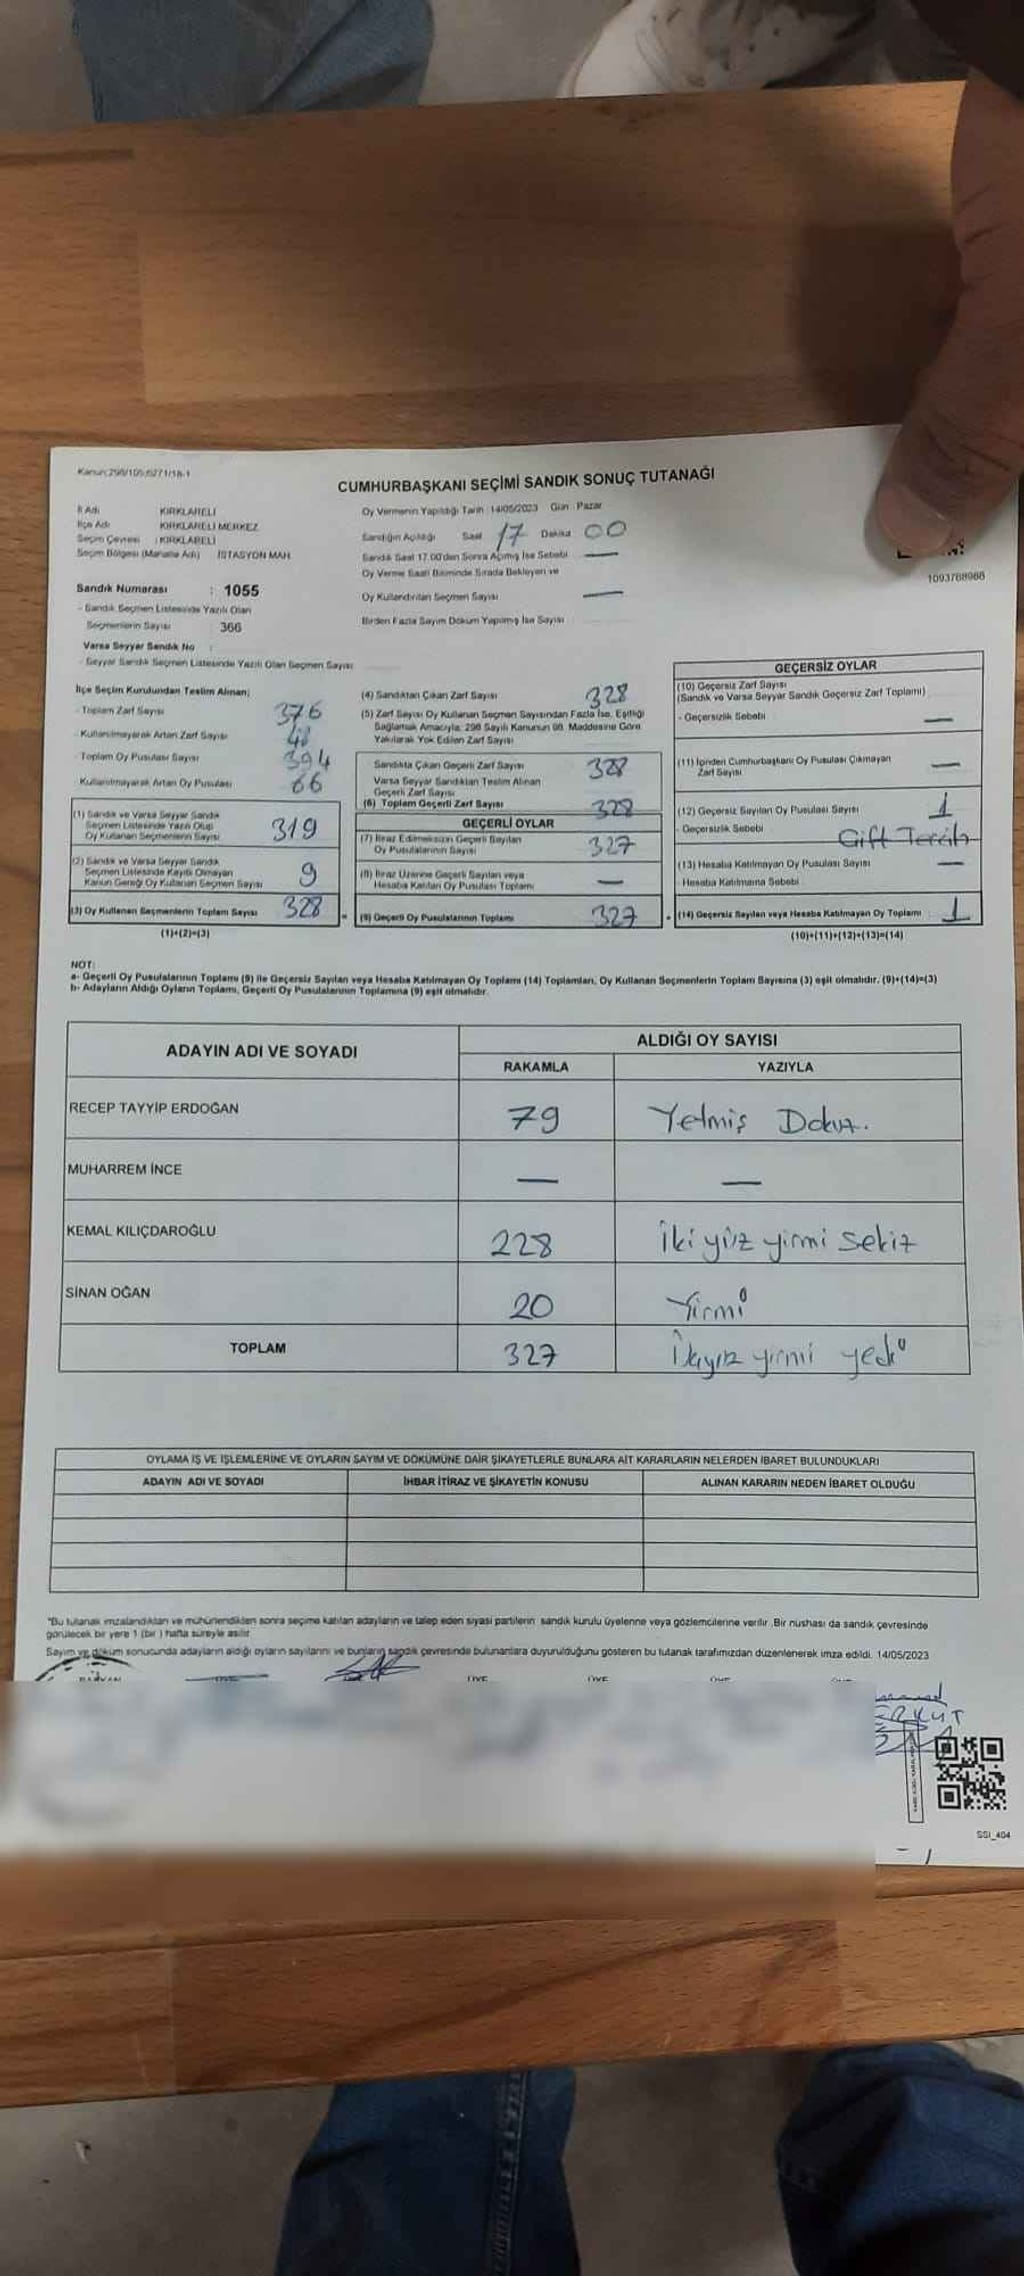 Kanun:298/105;6271/18-1
CUMHURBAŞKANI SEÇİMİ SANDIK SONUÇ TUTANAĞI
İl Adı : KIRKLARELİ
İlçe Adı KIRKLARELİ MERKEZ
Seçim Çevresi : KIRKLARELİ
Seçim Bölgesi (Mahalle Adı) İSTASYON MAH.
Sandık Numarası : 1055
- Sandık Seçmen Listesinde Yazılı Olan
Seçmenlerin Sayısı 366
Varsa Seyyar Sandık No :
- Seyyar Sandık Seçmen Listesinde Yazılı Olan Seçmen Sayısı
Oy Vermenin Yapıldığı Tarih : 14/05/2023 Gün : Pazar
Sandığın Açıldığı Saat 17 Dakika 00
Sandık Saat 17.00'den Sonra Açılmış İse Sebebi —
Oy Verme Saati Bitiminde Sırada Bekleyen ve
Oy Kullandırılan Seçmen Sayısı —
Birden Fazla Sayım Döküm Yapılmış İse Sayısı
1093768968
İlçe Seçim Kurulundan Teslim Alınan;
- Toplam Zarf Sayısı 376
- Kullanılmayarak Artan Zarf Sayısı
- Toplam Oy Pusulası Sayısı 394
- Kullanılmayarak Artan Oy Pusulası 66
(1) Sandık ve Varsa Seyyar Sandık
Seçmen Listesinde Yazılı Olup
Oy Kullanan Seçmenlerin Sayısı 319
(2) Sandık ve Varsa Seyyar Sandık
Seçmen Listesinde Kayıtlı Olmayan
Kanun Gereği Oy Kullanan Seçmen Sayısı 9
(3) Oy Kullanan Seçmenlerin Toplam Sayısı 328
(1)+(2)=(3)
(4) Sandıktan Çıkan Zarf Sayısı 328
(5) Zarf Sayısı Oy Kullanan Seçmen Sayısından Fazla İse, Eşitliği
Sağlamak Amacıyla, 298 Sayılı Kanunun 98. Maddesine Göre
Yakılarak Yok Edilen Zarf Sayısı
Sandıkta Çıkan Geçerli Zarf Sayısı 328
Varsa Seyyar Sandıktan Teslim Alınan
Geçerli Zarf Sayısı
(6) Toplam Geçerli Zarf Sayısı 328
GEÇERLİ OYLAR
(7) İtiraz Edilmeksizin Geçerli Sayılan
Oy Pusulalarının Sayısı 327
(8) İtiraz Üzerine Geçerli Sayılan veya
Hesaba Katılan Oy Pusulası Toplamı —
= (9) Geçerli Oy Pusulalarının Toplamı 327
GEÇERSİZ OYLAR
(10) Geçersiz Zarf Sayısı
(Sandık ve Varsa Seyyar Sandık Geçersiz Zarf Toplamı)
- Geçersizlik Sebebi —
(11) İçinden Cumhurbaşkanı Oy Pusulası Çıkmayan
Zarf Sayısı —
(12) Geçersiz Sayılan Oy Pusulası Sayısı 1
- Geçersizlik Sebebi Çift Tercih
(13) Hesaba Katılmayan Oy Pusulası Sayısı —
Hesaba Katılmama Sebebi
+ (14) Geçersiz Sayılan veya Hesaba Katılmayan Oy Toplamı : 1
(10)+(11)+(12)+(13)=(14)
NOT:
a- Geçerli Oy Pusulalarının Toplamı (9) ile Geçersiz Sayılan veya Hesaba Katılmayan Oy Toplamı (14) Toplamları, Oy Kullanan Seçmenlerin Toplam Sayısına (3) eşit olmalıdır. (9)+(14)=(3)
b- Adayların Aldığı Oyların Toplamı, Geçerli Oy Pusulalarının Toplamına (9) eşit olmalıdır.
ADAYIN ADI VE SOYADI
ALDIĞI OY SAYISI
RAKAMLA YAZIYLA
RECEP TAYYİP ERDOĞAN 79 Yetmiş Dokuz.
MUHARREM İNCE — —
KEMAL KILIÇDAROĞLU 228 İki yüz yirmi sekiz
SİNAN OĞAN 20 Yirmi
TOPLAM 327 İkiyüz yirmi yedi
OYLAMA İŞ VE İŞLEMLERİNE VE OYLARIN SAYIM VE DÖKÜMÜNE DAİR ŞİKAYETLERLE BUNLARA AİT KARARLARIN NELERDEN İBARET BULUNDUKLARI
ADAYIN ADI VE SOYADI İHBAR İTİRAZ VE ŞİKAYETİN KONUSU ALINAN KARARIN NEDEN İBARET OLDUĞU
"Bu tutanak imzalandıktan ve mühürlendikten sonra seçime katılan adayların ve talep eden siyasi partilerin sandık kurulu üyelerine veya gözlemcilerine verilir. Bir nüshası da sandık çevresinde
görülecek bir yere 1 (bir) hafta süreyle asılır.
Sayım ve döküm sonucunda adayların aldığı oyların sayılarını ve bunların sandık çevresinde bulunanlara duyurulduğunu gösteren bu tutanak tarafımızdan düzenlenerek imza edildi. 14/05/2023
SSI_404